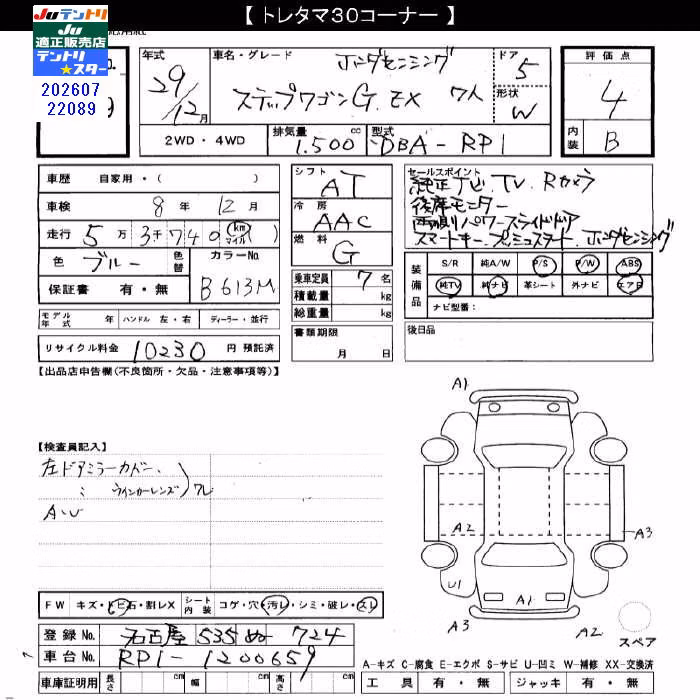 【 トレタマ30コーナー 】
Juテントリ
Ju
適正販売店
テントリ
★スター
202607
22089
年式
29/12月
車名・グレード
ホンダセンシング
ステップワゴンG.EX 7人
ドア
5
形状
W
評価点
4
内装
B
2WD・4WD
排気量
1.500 cc
型式
DBA-RP1
車歴 自家用・( )
車検 8年 12月
走行 5万 3千740 km マイル
色 ブルー
色替
カラーNo.
B613M
保証書 有・無
シフト
AT
冷房
AAC
燃料
G
乗車定員 7名
積載量 kg
総重量 kg
セールスポイント
純正ナビ.TV.Rカメラ
後席モニター
両側パワースライドドア
スマートキー.プッシュスタート.ホンダセンシング
装備品
S/R 純A/W P/S P/W ABS
純TV 純ナビ 革シート 外ナビ エアB
ナビ型番:
モデル年式 年 ハンドル 左・右 ディーラー・並行
書類期限
月 日
後日品
リサイクル料金 10230 円 預託済
【出品店申告欄(不良箇所・欠品・注意事項等)】
【検査員記入】
左ドアミラーカバー、
〃 ウインカーレンズ ワレ
A・U
A1
A2
A3
U1
A1
A3
A2
スペア
FW キズ・トビ石・割レX
シート内装 コゲ・穴・汚レ・シミ・破レ・スレ
登録No. 名古屋 535 ぬ 724
車台No. RP1-1200659
車庫証明用 長さ cm 幅 cm 高さ cm
A-キズ C-腐食 E-エクボ S-サビ U-凹ミ W-補修 XX-交換済
工具 有・無 ジャッキ 有・無